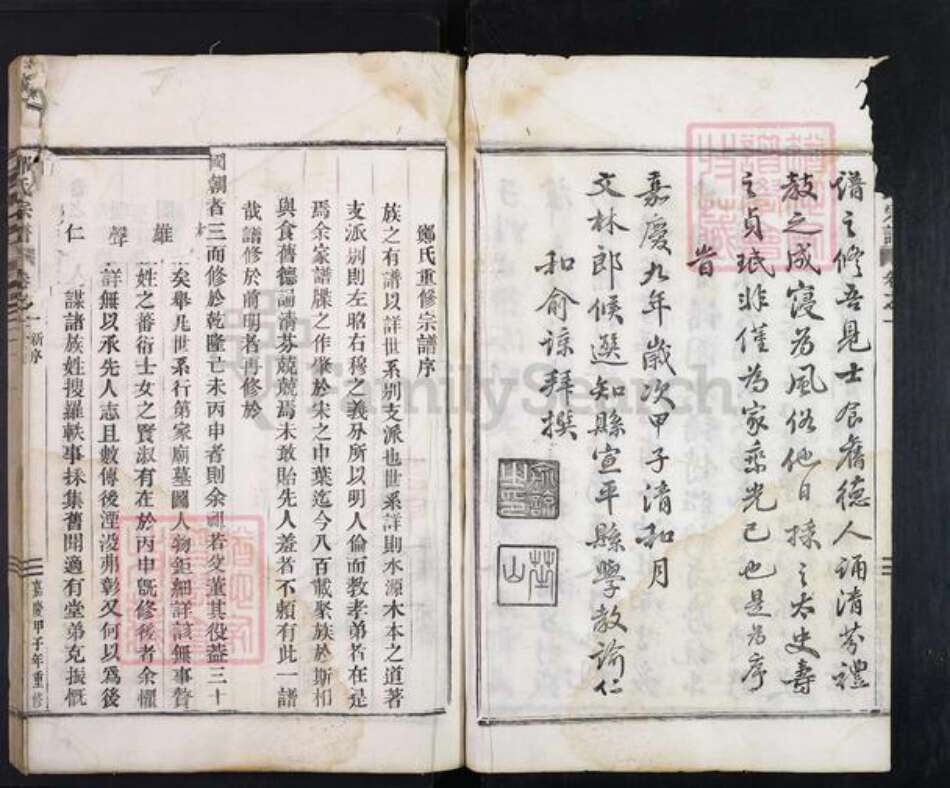 譜之修吾見士食舊德人誦清芬禮
教之成寖為風俗他日採之太史壽
之貞珉非僅為家乘光已也是為序
嘉慶九年歲次甲子清和月
文林郎候選知縣宣平縣學教諭仁
和俞諒拜撰
鄭氏重修宗譜序
族之有譜以詳世系別支派也世系詳則水源木本之道著
支派別則左昭右穆之義分所以明人倫而教孝弟者在是
焉余家譜牒之作肇於宋之中葉迄今八百載聚族於斯相
與食舊德誦清芬兢兢焉未敢貽先人羞者不賴有此一譜
哉譜修於前明者再修於
國朝者三而修於乾隆乙未丙申者則余祖若父董其役蓋三十
雄
矣舉凡世系行第家廟墓圖人物鉅細詳該無事贅
姓之蕃衍士女之賢淑有在於丙申既修後者余懼
聲
詳無以承先人志且數傳後湮沒弗彰又何以為後
仁
謀諸族姓搜羅軼事採集舊聞適有堂弟克振慨
氏宗譜
卷之一
新序
嘉慶甲子年重修
FamilySearch